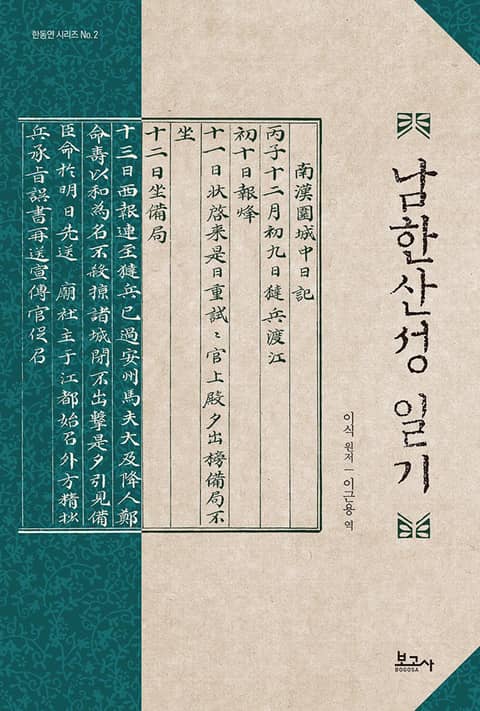 한동연 시리즈 No.2
남한산성 일기
이식 원저 | 이근용 역
南漢圍城中日記
丙子十二月初九日㺚兵渡江
初十日報烽
十一日狀啓来是日重試〻官上殿夕出榜備局不
坐
十二日坐備局
十三日西報連至㺚兵已過安州馬夫大及降人鄭
命壽以和為名不殺掠諸城閉不出擊是夕引見備
臣命於明日先送 廟社主于江都始召外方精抄
兵承旨誤書再送宣傳官促召
보고사
BOGOSA